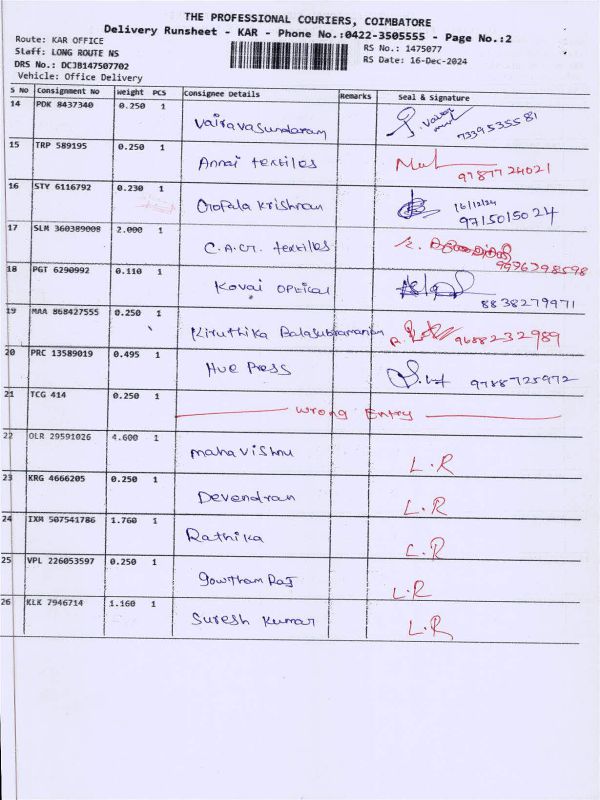 THE PROFESSIONAL COURIERS, COIMBATORE
Delivery Runsheet - KAR - Phone No.:0422-3505555 - Page No.:2
Route: KAR OFFICE
RS No.: 1475077
Staff: LONG ROUTE NS
RS Date: 16-Dec-2024
DRS No.: DCJB147507702
Vehicle: Office Delivery
S No Consignment No Weight PCS Consignee Details Remarks Seal & Signature
14 PDK 8437340 0.250 1 Vairavasundaram 7339535581
15 TRP 589195 0.250 1 Annai textiles 9787724021
16 STY 6116792 0.230 1 Gopala Krishnan 16/12/24 9715015024
17 SLM 360389008 2.000 1 C.A.G. textiles 9996398598
18 PGT 6290992 0.110 1 Kovai optical 8838279971
19 MAA 868427555 0.250 1 Kiruthika Balasubramaniam 9688232989
20 PRC 13589019 0.495 1 Hue Press 9788725972
21 TCG 414 0.250 1 Wrong Entry
22 OLR 29591026 4.600 1 mahavishnu L.R
23 KRG 4666205 0.250 1 Devendran L.R
24 IXM 507541786 1.760 1 Rathika L.R
25 VPL 226053597 0.250 1 gowtham Raj L.R
26 KLK 7946714 1.160 1 Suresh kumar L.R